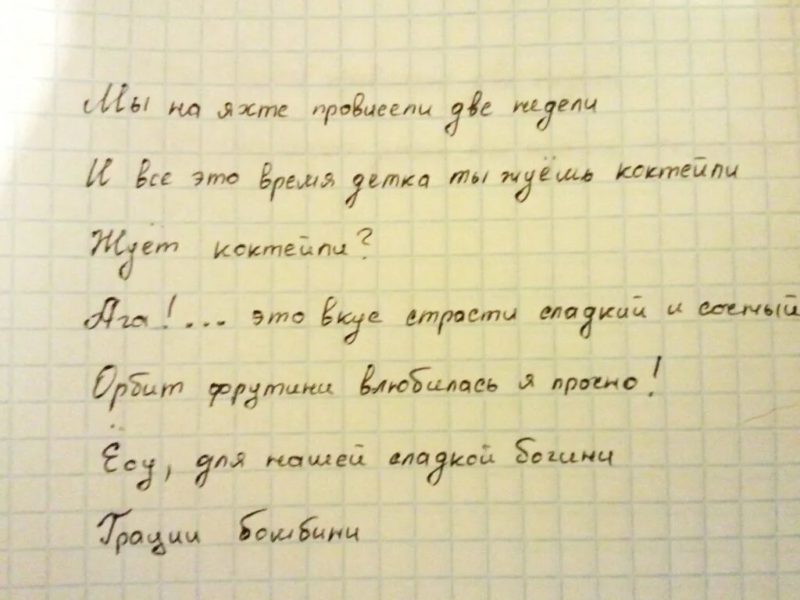 Мы на яхте провисели две недели
И все это время детка ты жуёшь коктейли
Жуёт коктейли?
Ага!... это вкус страсти сладкий и сочный
Орбит фрутини влюбилась я прочно!
Ёоу, для нашей сладкой богини
Грации бомбини